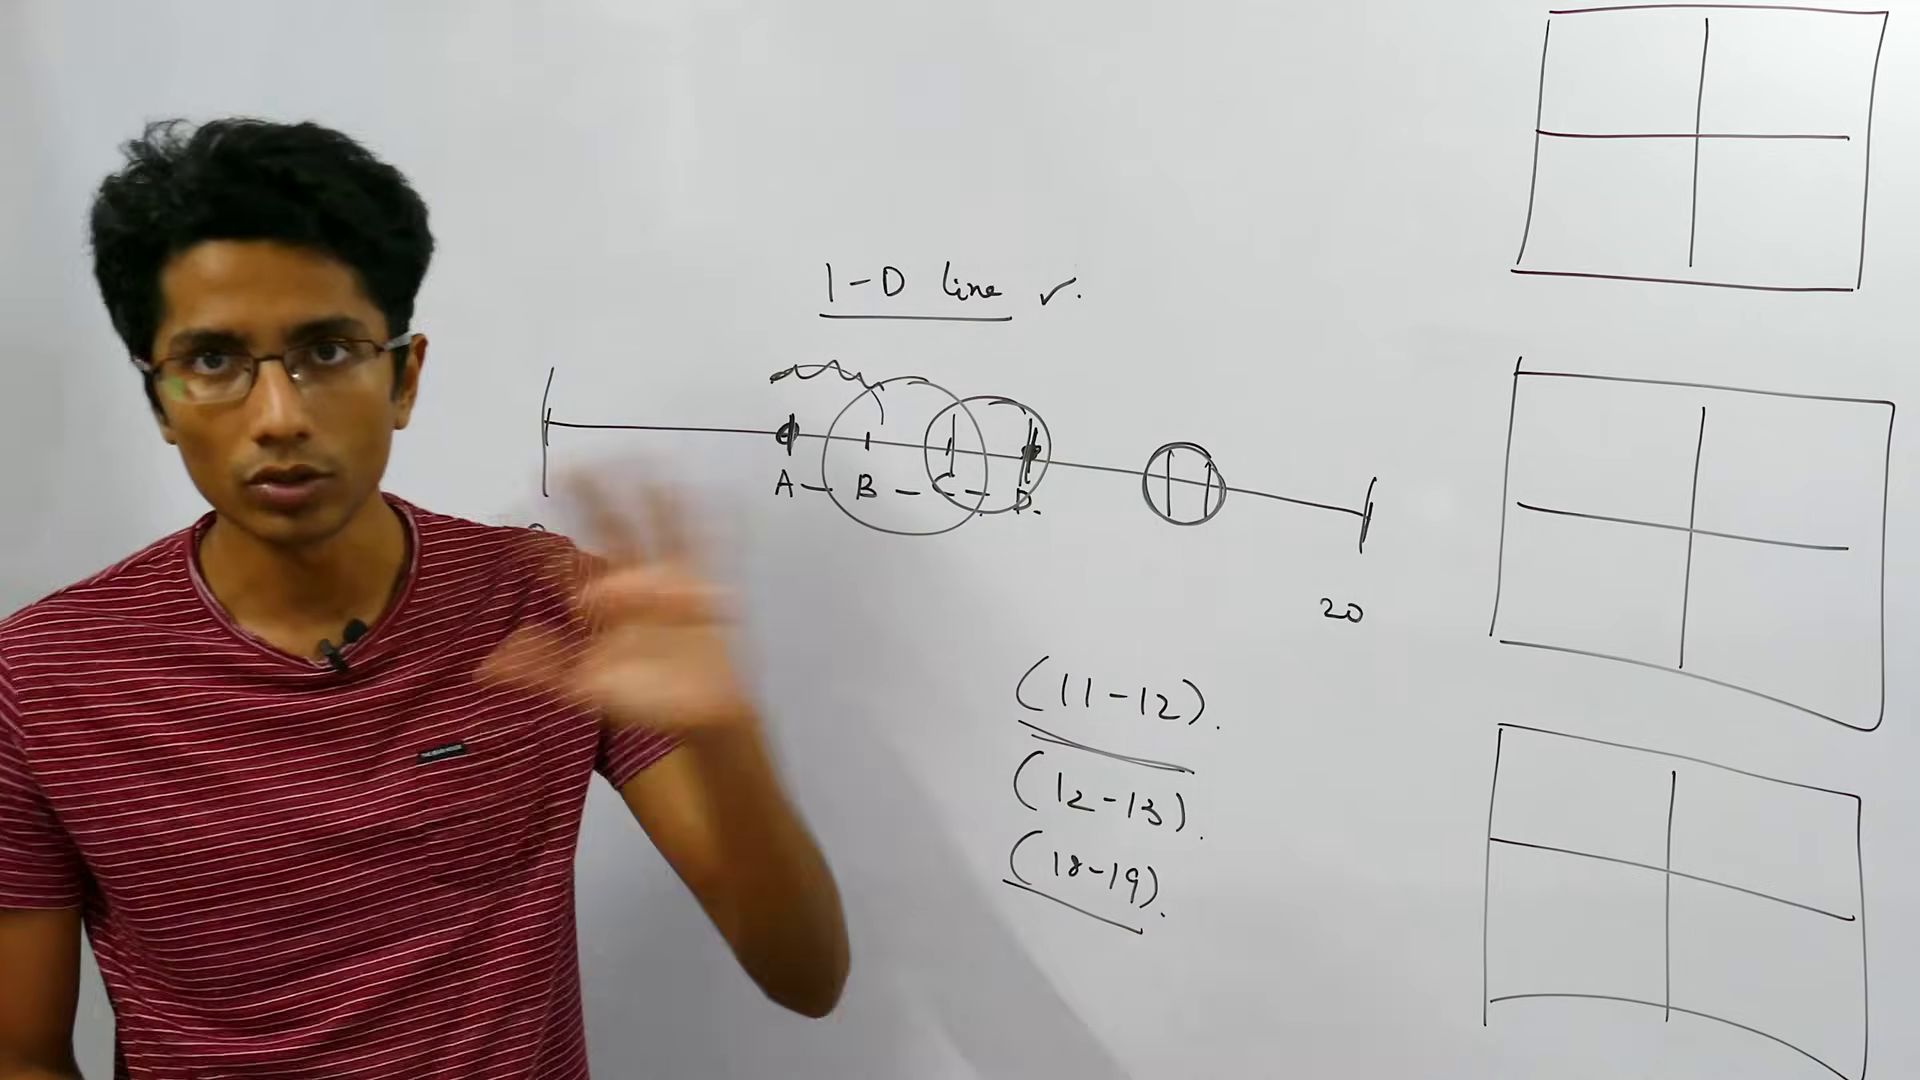 1-D line ✓.
A - B - C - D.
20
(11-12).
(12-13).
(18-19).